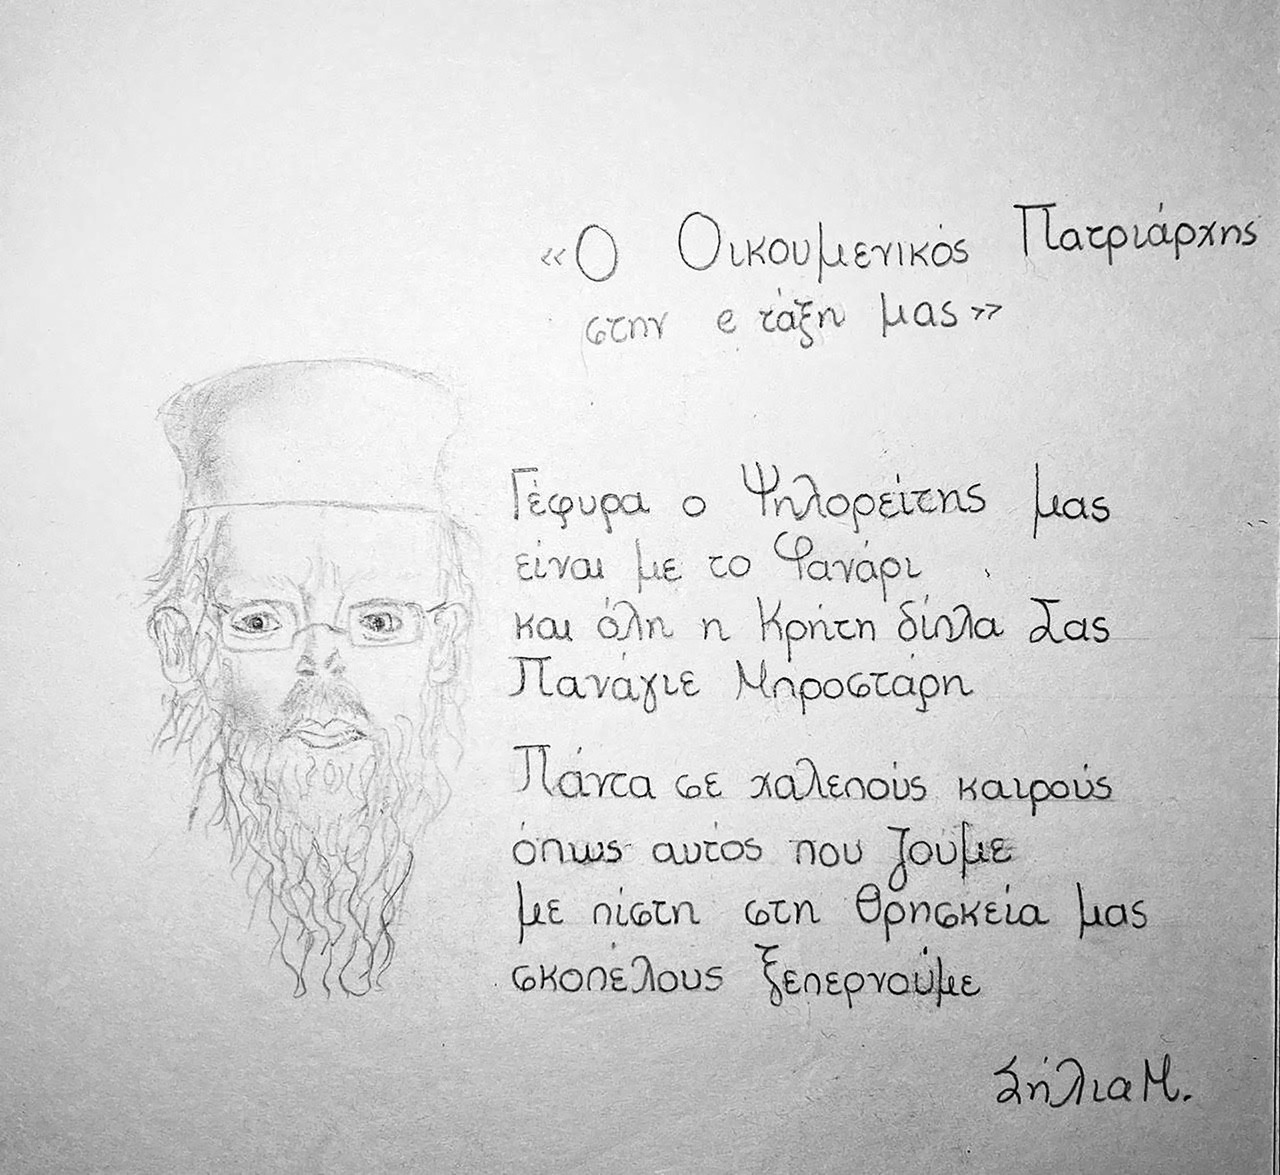 «Ο Οικουμενικός Πατριάρχης
στην e τάξη μας»
Γέφυρα ο Ψηλορείτης μας
είναι με το Φανάρι
και όλη η Κρήτη δίπλα Σας
Πανάγιε Μπροστάρη
Πάντα σε χαλεπούς καιρούς
όπως αυτός που ζούμε
με πίστη στη Θρησκεία μας
σκοπέλους ξεπερνούμε
Σήλια Μ.